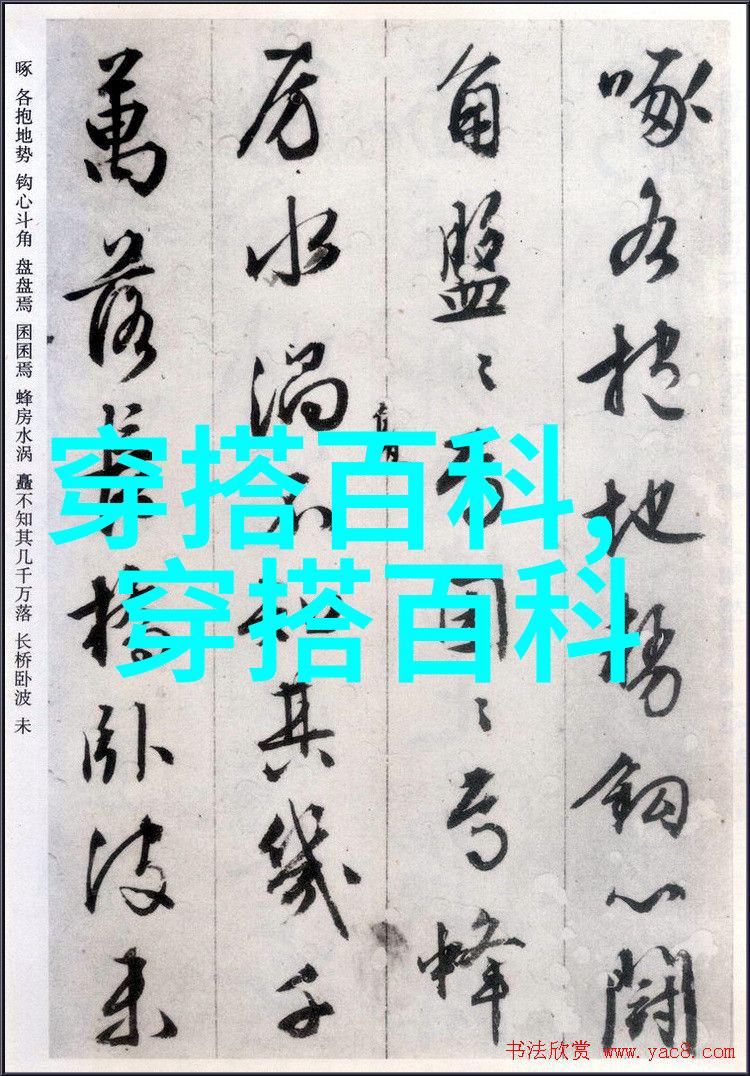 啄各抱地勢鈎心鬪
角盤〻焉囷〻焉蜂
房水渦不知其幾千
萬落長橋卧波未
啄 各抱地势 钩心斗角 盘盘焉 囷囷焉 蜂房水涡 矗不知其几千万落 长桥卧波 未
穿搭百科,
穿搭百科
书法欣赏 www.yac8.com